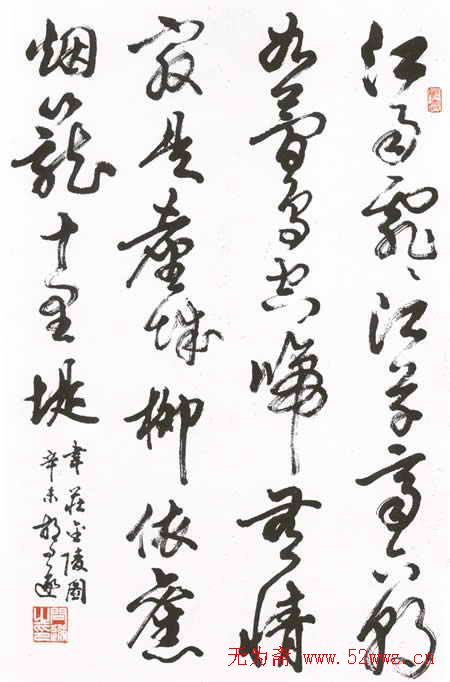 江雨霏〻江草齊六朝
如夢鳥空啼無情
最是臺城柳依舊
烟籠十里堤
韋莊金陵圖
辛未胡問遂
无为斋 www.52wwz.cn